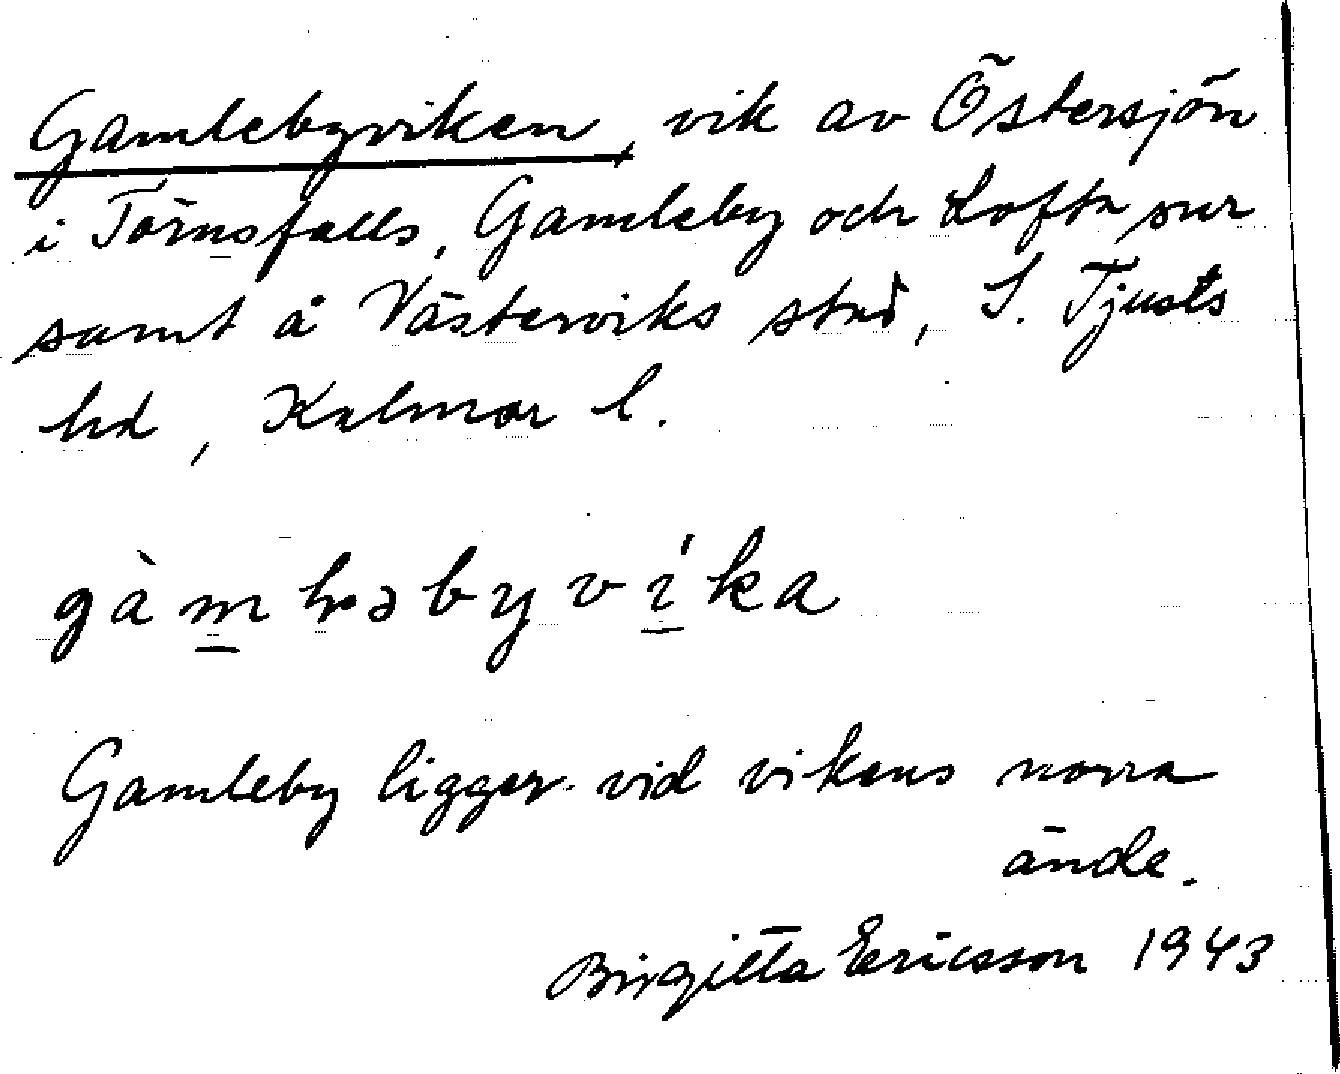 Gamlebyviken, vik av Östersjön
i Törnsfalls, Gamleby och Lofta snr
samt å Västerviks stad, S. Tjusts
hd, Kalmar l.
Gamleby ligger vid vikens norra
ände.
Birgitta Ericsson 1943